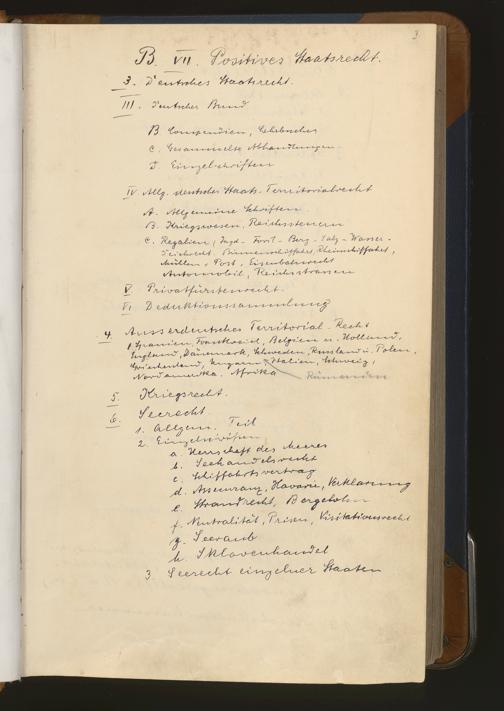 3
B. VII. Positives Staatsrecht.
3. Deutsches Staatsrecht.
III. Deutscher Bund
B Compendien, Lehrbücher
C. Gesammelte Abhandlungen
D. Einzelschriften
IV. Allg. deutsches Staats-Territorialrecht
A. Allgemeine Schriften
B. Kriegswesen, Reichssteuern
C. Regalien, Jagd- Forst- Berg- Salz- Wasser-
Deichrecht, Binnenschiffahrt, Rheinschiffahrt,
Mühlen, Post, Eisenbahnrecht
Automobil, Reichsstrassen
V. Privatfürstenrecht.
VI. Deduktionssammlung
4. Ausserdeutsches Territorial-Recht
Spanien, Frankreich, Belgien u. Holland,
England, Dänemark, Schweden, Russland u. Polen,
Griechenland, Ungarn, Italien, Schweiz,
Nordamerika. Afrika Rumänien
5. Kriegsrecht.
6. Seerecht
1. Allgem. Teil
2. Einzelschriften
a. Herrschaft des Meeres
b. Seehandelsrecht
c. Schiffahrtsvertrag
d. Assecuranz, Havarie, Verklarung
e. Strandrecht, Bergelohn
f. Neutralität, Prisen, Visitationsrecht
g. Seeraub
h. Sklavenhandel
3. Seerecht einzelner Staaten